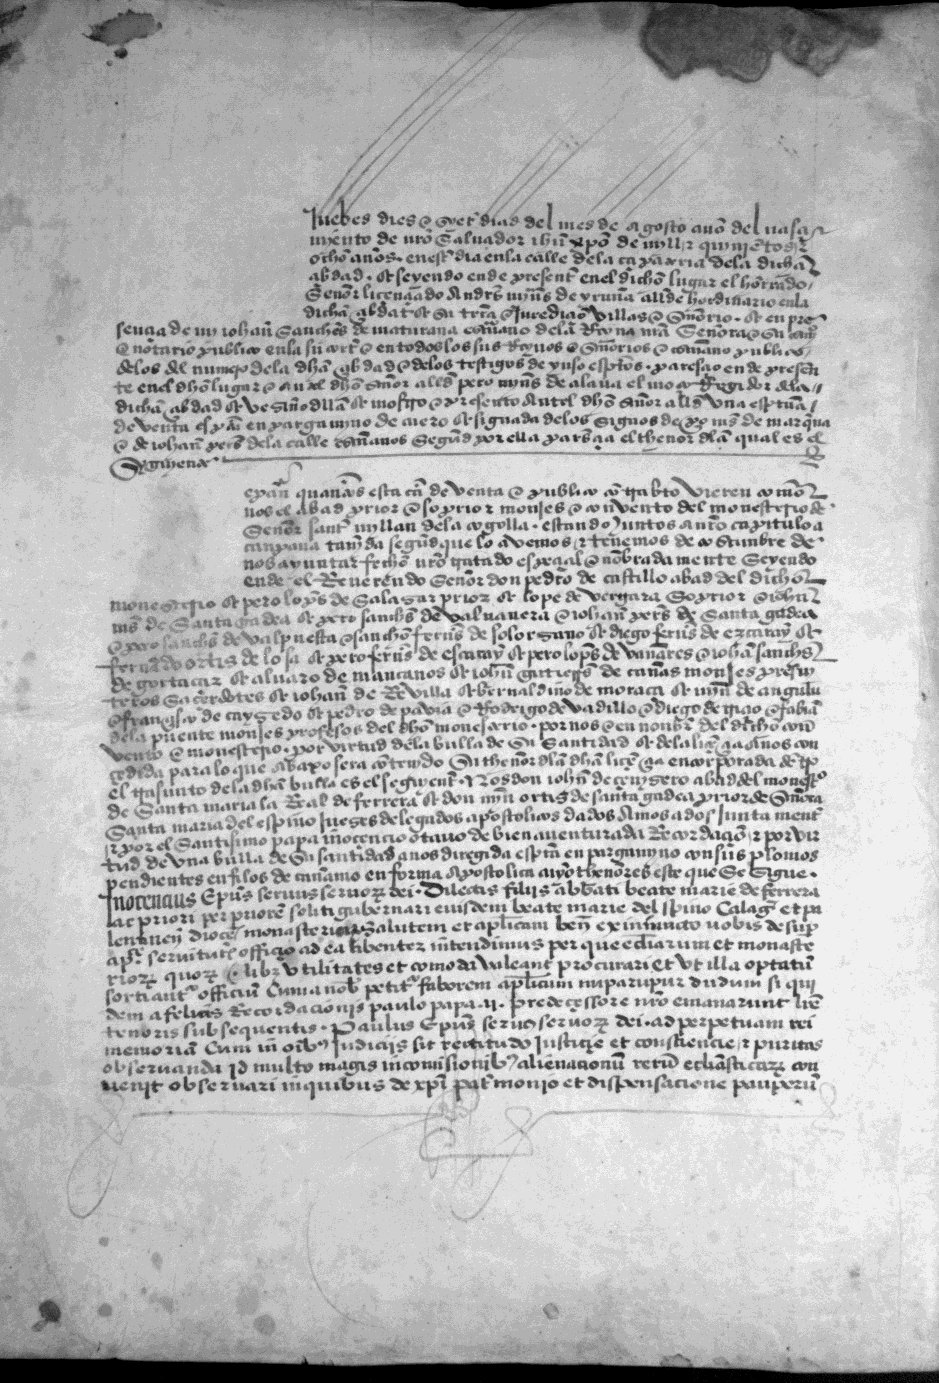 Juebes dies e syet dias del mes de agosto año del nasçi
miento de nro Saluador ihu xpo de mill e quinientos e
ocho años. en este dia en la calle dela capateria dela dicha
abdad. et seyendo ende presente enel dicho lugar el honrrado
Señor liçençiado Andres mrns de yruña allde hordinario enla
dicha abdat et su trra e Juridiçion villas e Señorio. et en pre
sençia de mi iohan Sanches de maturana escriuano dela Reyna nra Señora e su
e notario publico enla su corte e en todos los sus Reynos e Señorios e escriuano publico
delos del numero dela dha abdad e delos testigos de yuso escriptos. paresçio ende presen
te enel dho lugar e antel dho Señor allde pero mrns de alaua el moço Regidor dela
dicha abdad et vezino della et mostro e presento antel dho Señor allde vna escriptura
de venta escripta en pargamino de cuero et signada delos signos de
e de iohan peres dela calle escriuanos Segund por ella paresçia el thenor dela qual es el
Syguiente
Sepan quantos esta carta de venta e publico contrabto vieren como
nos el abad prior e soprior monjes e convento del monesterio de
Señor sant myllan dela cogolla. estando Juntos a nro capitulo a
canpana tanida segund que lo avemos e tenemos de costunbre de
nos ayuntar fecho nro tratado espeçial e nonbradamente Seyendo
ende el Reuerendo Señor don pedro de castillo abad del dicho
monesterio et pero lopes de Salazar prior et lope de vergara Soprior e iohan
mrns de Santa gadea et pero sanches de valuanera e iohan peres de Santa gadea
e pero sanches de valpuesta e sancho ferrns de solorzano et diego ferrns de ezcaray et
fernando ortis de losa et pero ferrns de escaray et pero lopes de vanares e iohan sanches
de gortaçar et aluaro de mancanos et iohan gutierres de canas monjes presby
teros Saçerdotes et iohan de Reuilla et bernaldino de et mrn de angulo
e françisco de cayçedo et pedro de pauia e Rodrigo de vadillo e diego de e fabian
dela puente monjes profesos del dho monesterio. por nos e en nonbre del dicho con
vento e monesterio. por virtud dela bulla de Su Santidad et dela liçençia a nos con
çedida para lo que abaxo sera contenido Su thenor dela dha liçençia encorporada
el trasunto dela dha bulla es el seguiente Nos don iohan de çenizero abad del monesterio
de Santa maria la Real de ferrera et don mrn ortis de santa gadea prior de Señora
Santa maria del espino Jueses delegados apostolicos dados Amos ados Junta mente
e por el Santisimo papa inoçençio otauo de bienaventurada Recordaçion e por vir
tud de vna bulla de Su santidad a nos diregida escripta en pargamino con sus plomos
pendientes en filos de cañamo en forma Apostolica cuyo thenor es este que Se Sigue.
Inocencius Epus seruus seruorum dei. Dilectis filiis abbati beate marie de ferrera
ac priori per priorem soliti gubernari eiusdem beate marie del spino Calagur et pa
lentinen dioces monasteriorum Salutem et aplicam ben ex iniuncto nobis desup
apce seruitutis officio ad ea libenter intendimus per que ecclesiarum et monaste
riorum quorumlibet vtilitates et comoda valeant procurari Et vt illa optatum
sortiantur officium Cum a nobis petitur faborem aplicum inpartipur dudum si qui
dem a felicis Recordacionis paulo papa ii. predecessore nro emanarunt lre
tenoris subsequentis. Paulus Epus seruus seruorum dei. ad perpetuam rei
memoriam Cum in oibus Judiciis sit rectitudo Justicie et consciencie e puritas
obseruanda id multo magis in comisionibus alienacionum rerum ecclesiasticarum con
uenit obseruari in quibus de xpi patrimonio et dispensacione pauperum